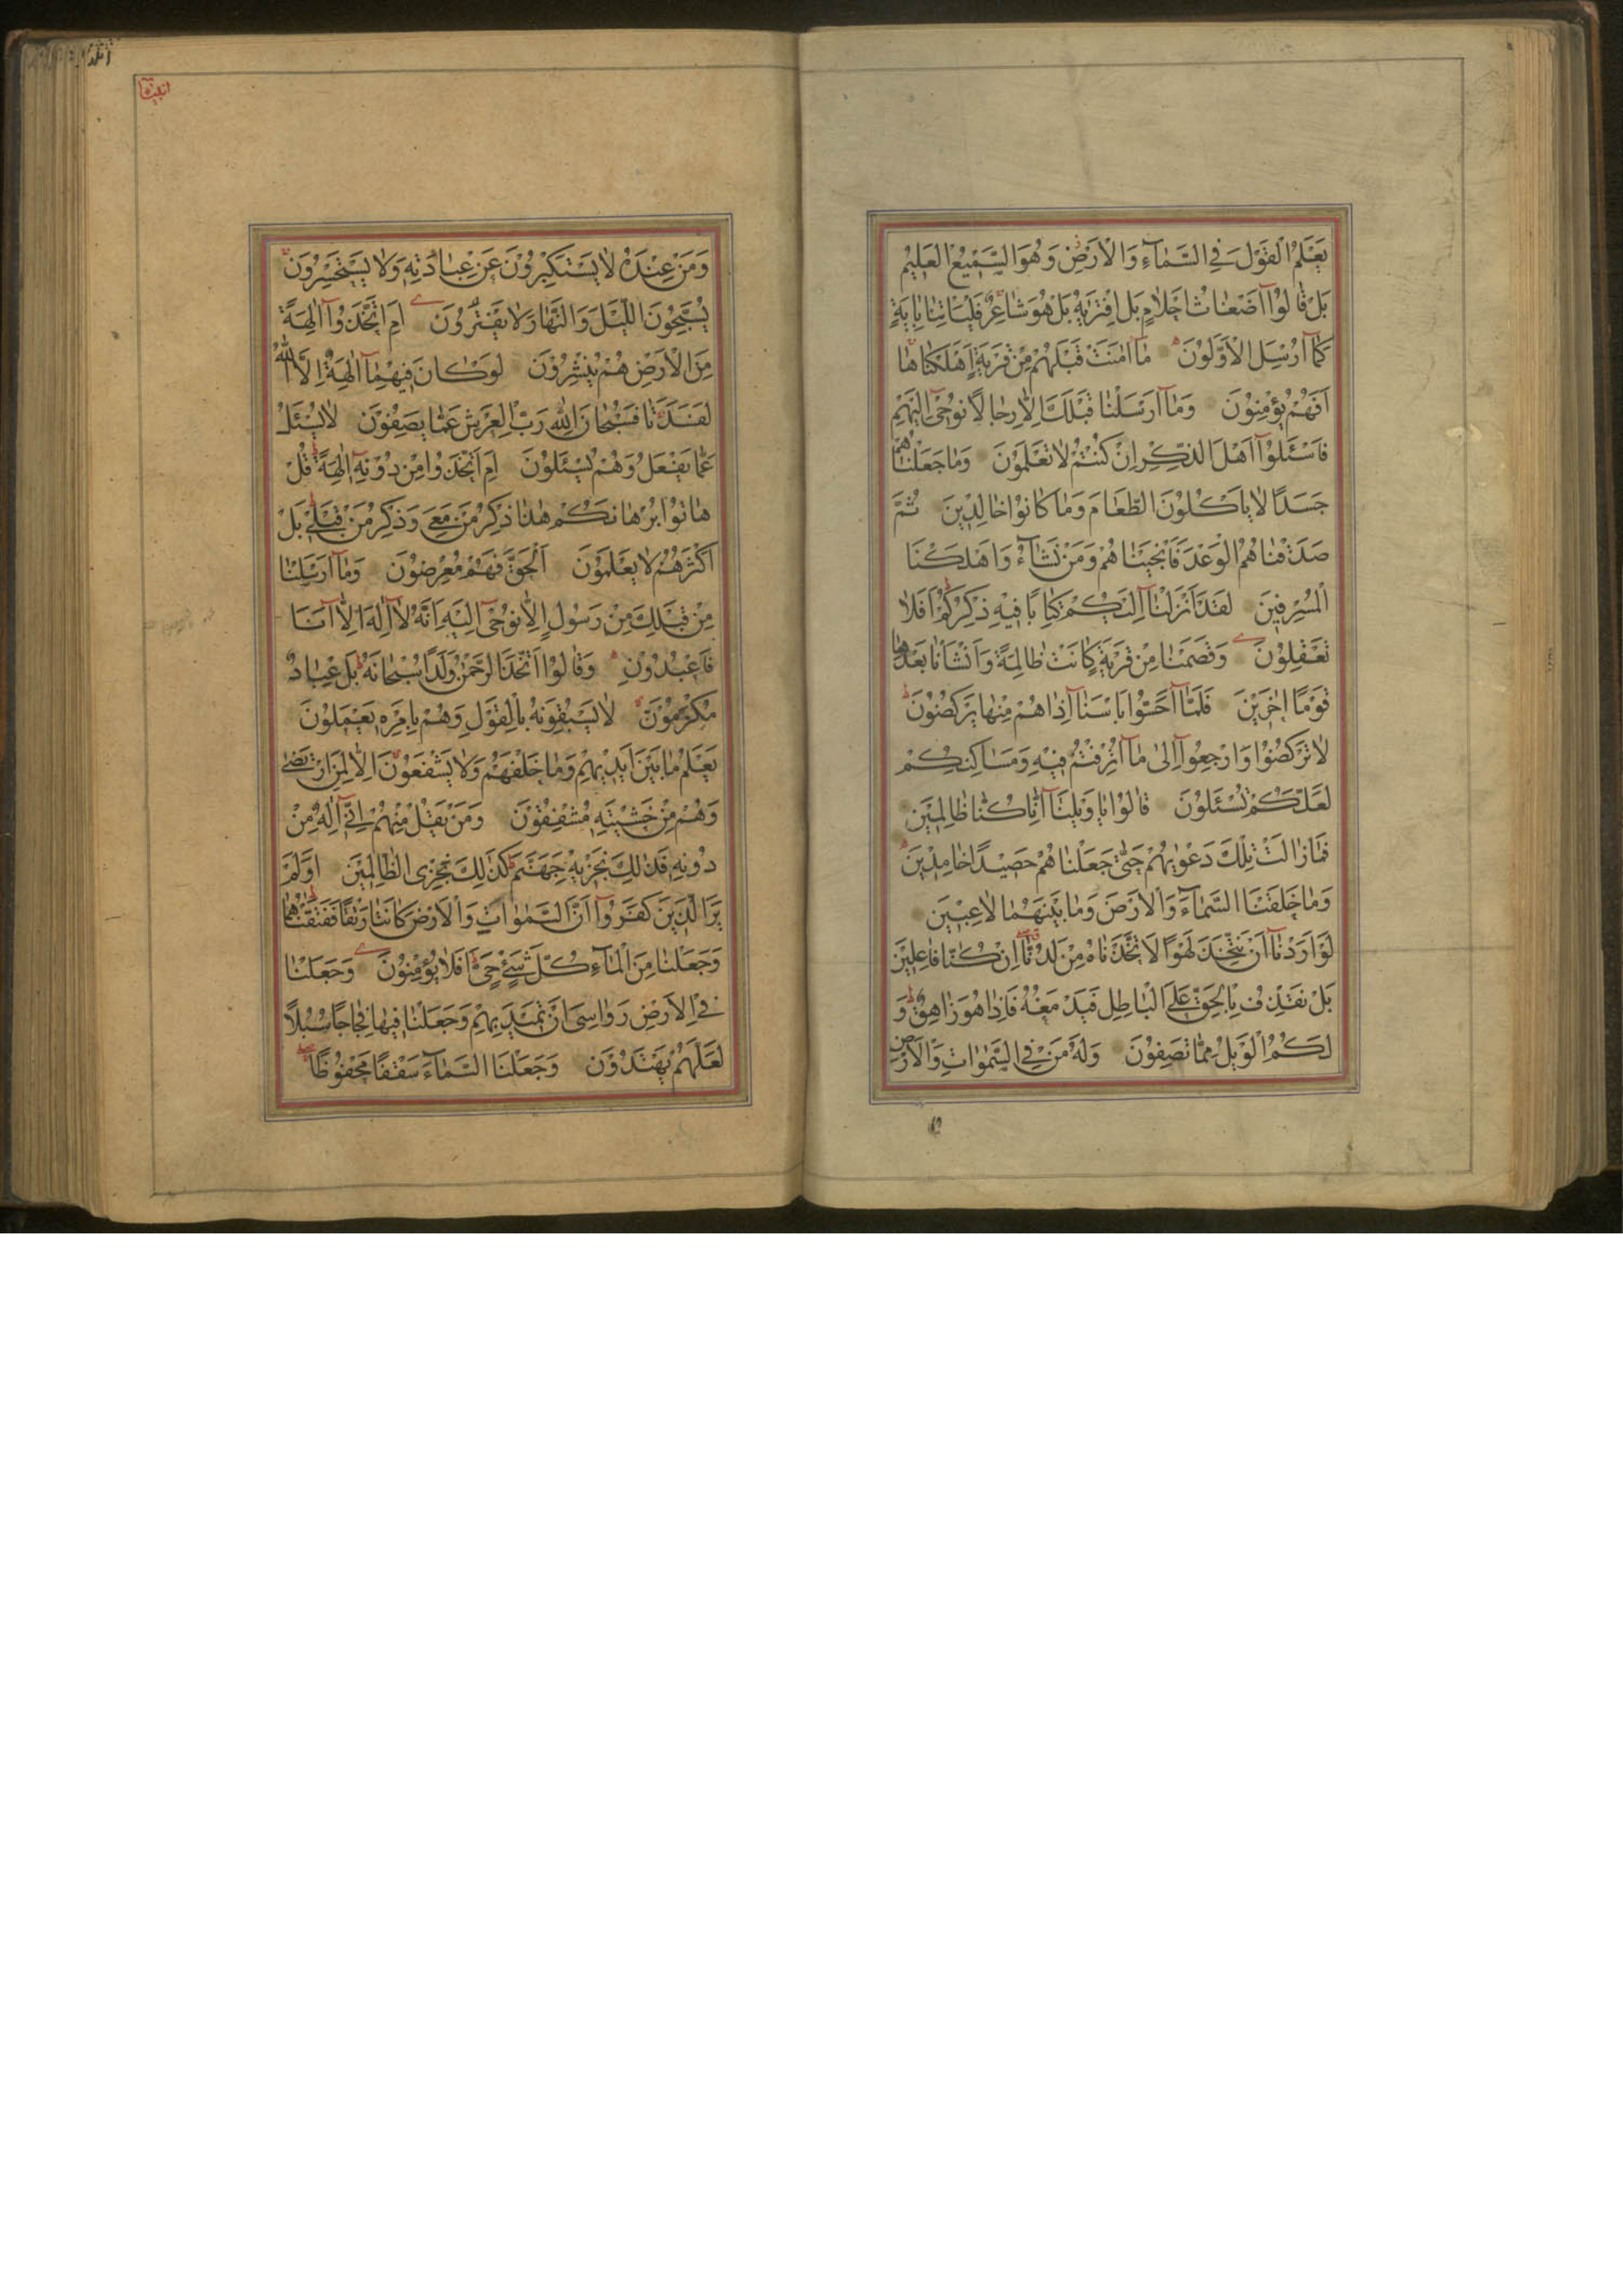 يَعْلَمُ الْقَوْلَ فِي السَّمَآءِ وَالْاَرْضِ وَهُوَ السَّمِيعُ الْعَلِيمُ
بَلْ قَالُوْٓا اَضْغَاثُ اَحْلَامٍ بَلِ افْتَرٰيهُ بَلْ هُوَ شَاعِرٌ فَلْيَاْتِنَا بِاٰيَةٍ
كَمَآ اُرْسِلَ الْاَوَّلُوْنَ مَآ اٰمَنَتْ قَبْلَهُمْ مِنْ قَرْيَةٍ اَهْلَكْنَاهَا
اَفَهُمْ يُؤْمِنُوْنَ وَمَآ اَرْسَلْنَا قَبْلَكَ اِلَّا رِجَالًا نُوحٰىٓ اِلَيْهِمْ
فَاسْئَلُوْٓا اَهْلَ الذِّكْرِ اِنْ كُنْتُمْ لَا تَعْلَمُوْنَ وَمَا جَعَلْنَاهُمْ
جَسَدًا لَا يَاْكُلُوْنَ الطَّعَامَ وَمَا كَانُوْا خَالِدِيْنَ ثُمَّ
صَدَقْنَاهُمُ الْوَعْدَ فَاَنْجَيْنَاهُمْ وَمَنْ نَشَآءُ وَاَهْلَكْنَا
الْمُسْرِفِيْنَ لَقَدْ اَنْزَلْنَآ اِلَيْكُمْ كِتَابًا فِيْهِ ذِكْرُكُمْ اَفَلَا
تَعْقِلُوْنَ وَقَصَمْنَا مِنْ قَرْيَةٍ كَانَتْ ظَالِمَةً وَاَنْشَاْنَا بَعْدَهَا
قَوْمًا اٰخَرِيْنَ فَلَمَّآ اَحَسُّوْا بَاْسَنَآ اِذَا هُمْ مِنْهَا يَرْكُضُوْنَ
لَا تَرْكُضُوْا وَارْجِعُوْٓا اِلٰى مَآ اُتْرِفْتُمْ فِيْهِ وَمَسَاكِنِكُمْ
لَعَلَّكُمْ تُسْئَلُوْنَ قَالُوْا يَا وَيْلَنَآ اِنَّا كُنَّا ظَالِمِيْنَ
فَمَا زَالَتْ تِلْكَ دَعْوٰيهُمْ حَتّٰى جَعَلْنَاهُمْ حَصِيْدًا خَامِدِيْنَ
وَمَا خَلَقْنَا السَّمَآءَ وَالْاَرْضَ وَمَا بَيْنَهُمَا لَاعِبِيْنَ
لَوْ اَرَدْنَآ اَنْ نَتَّخِذَ لَهْوًا لَاتَّخَذْنَاهُ مِنْ لَدُنَّآ اِنْ كُنَّا فَاعِلِيْنَ
بَلْ نَقْذِفُ بِالْحَقِّ عَلَى الْبَاطِلِ فَيَدْمَغُهُ فَاِذَا هُوَ زَاهِقٌ وَ
لَكُمُ الْوَيْلُ مِمَّا تَصِفُوْنَ وَلَهُ مَنْ فِي السَّمٰوَاتِ وَالْاَرْضِ
وَمَنْ عِنْدَهُ لَا يَسْتَكْبِرُوْنَ عَنْ عِبَادَتِهِ وَلَا يَسْتَحْسِرُوْنَ
يُسَبِّحُوْنَ اللَّيْلَ وَالنَّهَارَ لَا يَفْتُرُوْنَ اَمِ اتَّخَذُوْٓا اٰلِهَةً
مِنَ الْاَرْضِ هُمْ يُنْشِرُوْنَ لَوْ كَانَ فِيْهِمَآ اٰلِهَةٌ اِلَّا اللّٰهُ
لَفَسَدَتَا فَسُبْحَانَ اللّٰهِ رَبِّ الْعَرْشِ عَمَّا يَصِفُوْنَ لَا يُسْئَلُ
عَمَّا يَفْعَلُ وَهُمْ يُسْئَلُوْنَ اَمِ اتَّخَذُوْا مِنْ دُوْنِهِٓ اٰلِهَةً قُلْ
هَاتُوْا بُرْهَانَكُمْ هٰذَا ذِكْرُ مَنْ مَعِيَ وَذِكْرُ مَنْ قَبْلِيْ بَلْ
اَكْثَرُهُمْ لَا يَعْلَمُوْنَ الْحَقَّ فَهُمْ مُعْرِضُوْنَ وَمَآ اَرْسَلْنَا
مِنْ قَبْلِكَ مِنْ رَسُوْلٍ اِلَّا نُوْحِىٓ اِلَيْهِ اَنَّهُ لَآ اِلٰهَ اِلَّآ اَنَا
فَاعْبُدُوْنِ وَقَالُوْا اتَّخَذَ الرَّحْمٰنُ وَلَدًا سُبْحَانَهُ بَلْ عِبَادٌ
مُكْرَمُوْنَ لَا يَسْبِقُوْنَهُ بِالْقَوْلِ وَهُمْ بِاَمْرِهِ يَعْمَلُوْنَ
يَعْلَمُ مَا بَيْنَ اَيْدِيْهِمْ وَمَا خَلْفَهُمْ وَلَا يَشْفَعُوْنَ اِلَّا لِمَنِ ارْتَضٰى
وَهُمْ مِنْ خَشْيَتِهِ مُشْفِقُوْنَ وَمَنْ يَقُلْ مِنْهُمْ اِنِّيْٓ اِلٰهٌ مِنْ
دُوْنِهِ فَذٰلِكَ نَجْزِيْهِ جَهَنَّمَ كَذٰلِكَ نَجْزِى الظَّالِمِيْنَ اَوَلَمْ
يَرَ الَّذِيْنَ كَفَرُوْٓا اَنَّ السَّمٰوَاتِ وَالْاَرْضَ كَانَتَا رَتْقًا فَفَتَقْنَاهُمَا
وَجَعَلْنَا مِنَ الْمَآءِ كُلَّ شَيْءٍ حَيٍّ اَفَلَا يُؤْمِنُوْنَ وَجَعَلْنَا
فِي الْاَرْضِ رَوَاسِيَ اَنْ تَمِيْدَ بِهِمْ وَجَعَلْنَا فِيْهَا فِجَاجًا سُبُلًا
لَعَلَّهُمْ يَهْتَدُوْنَ وَجَعَلْنَا السَّمَآءَ سَقْفًا مَحْفُوْظًا